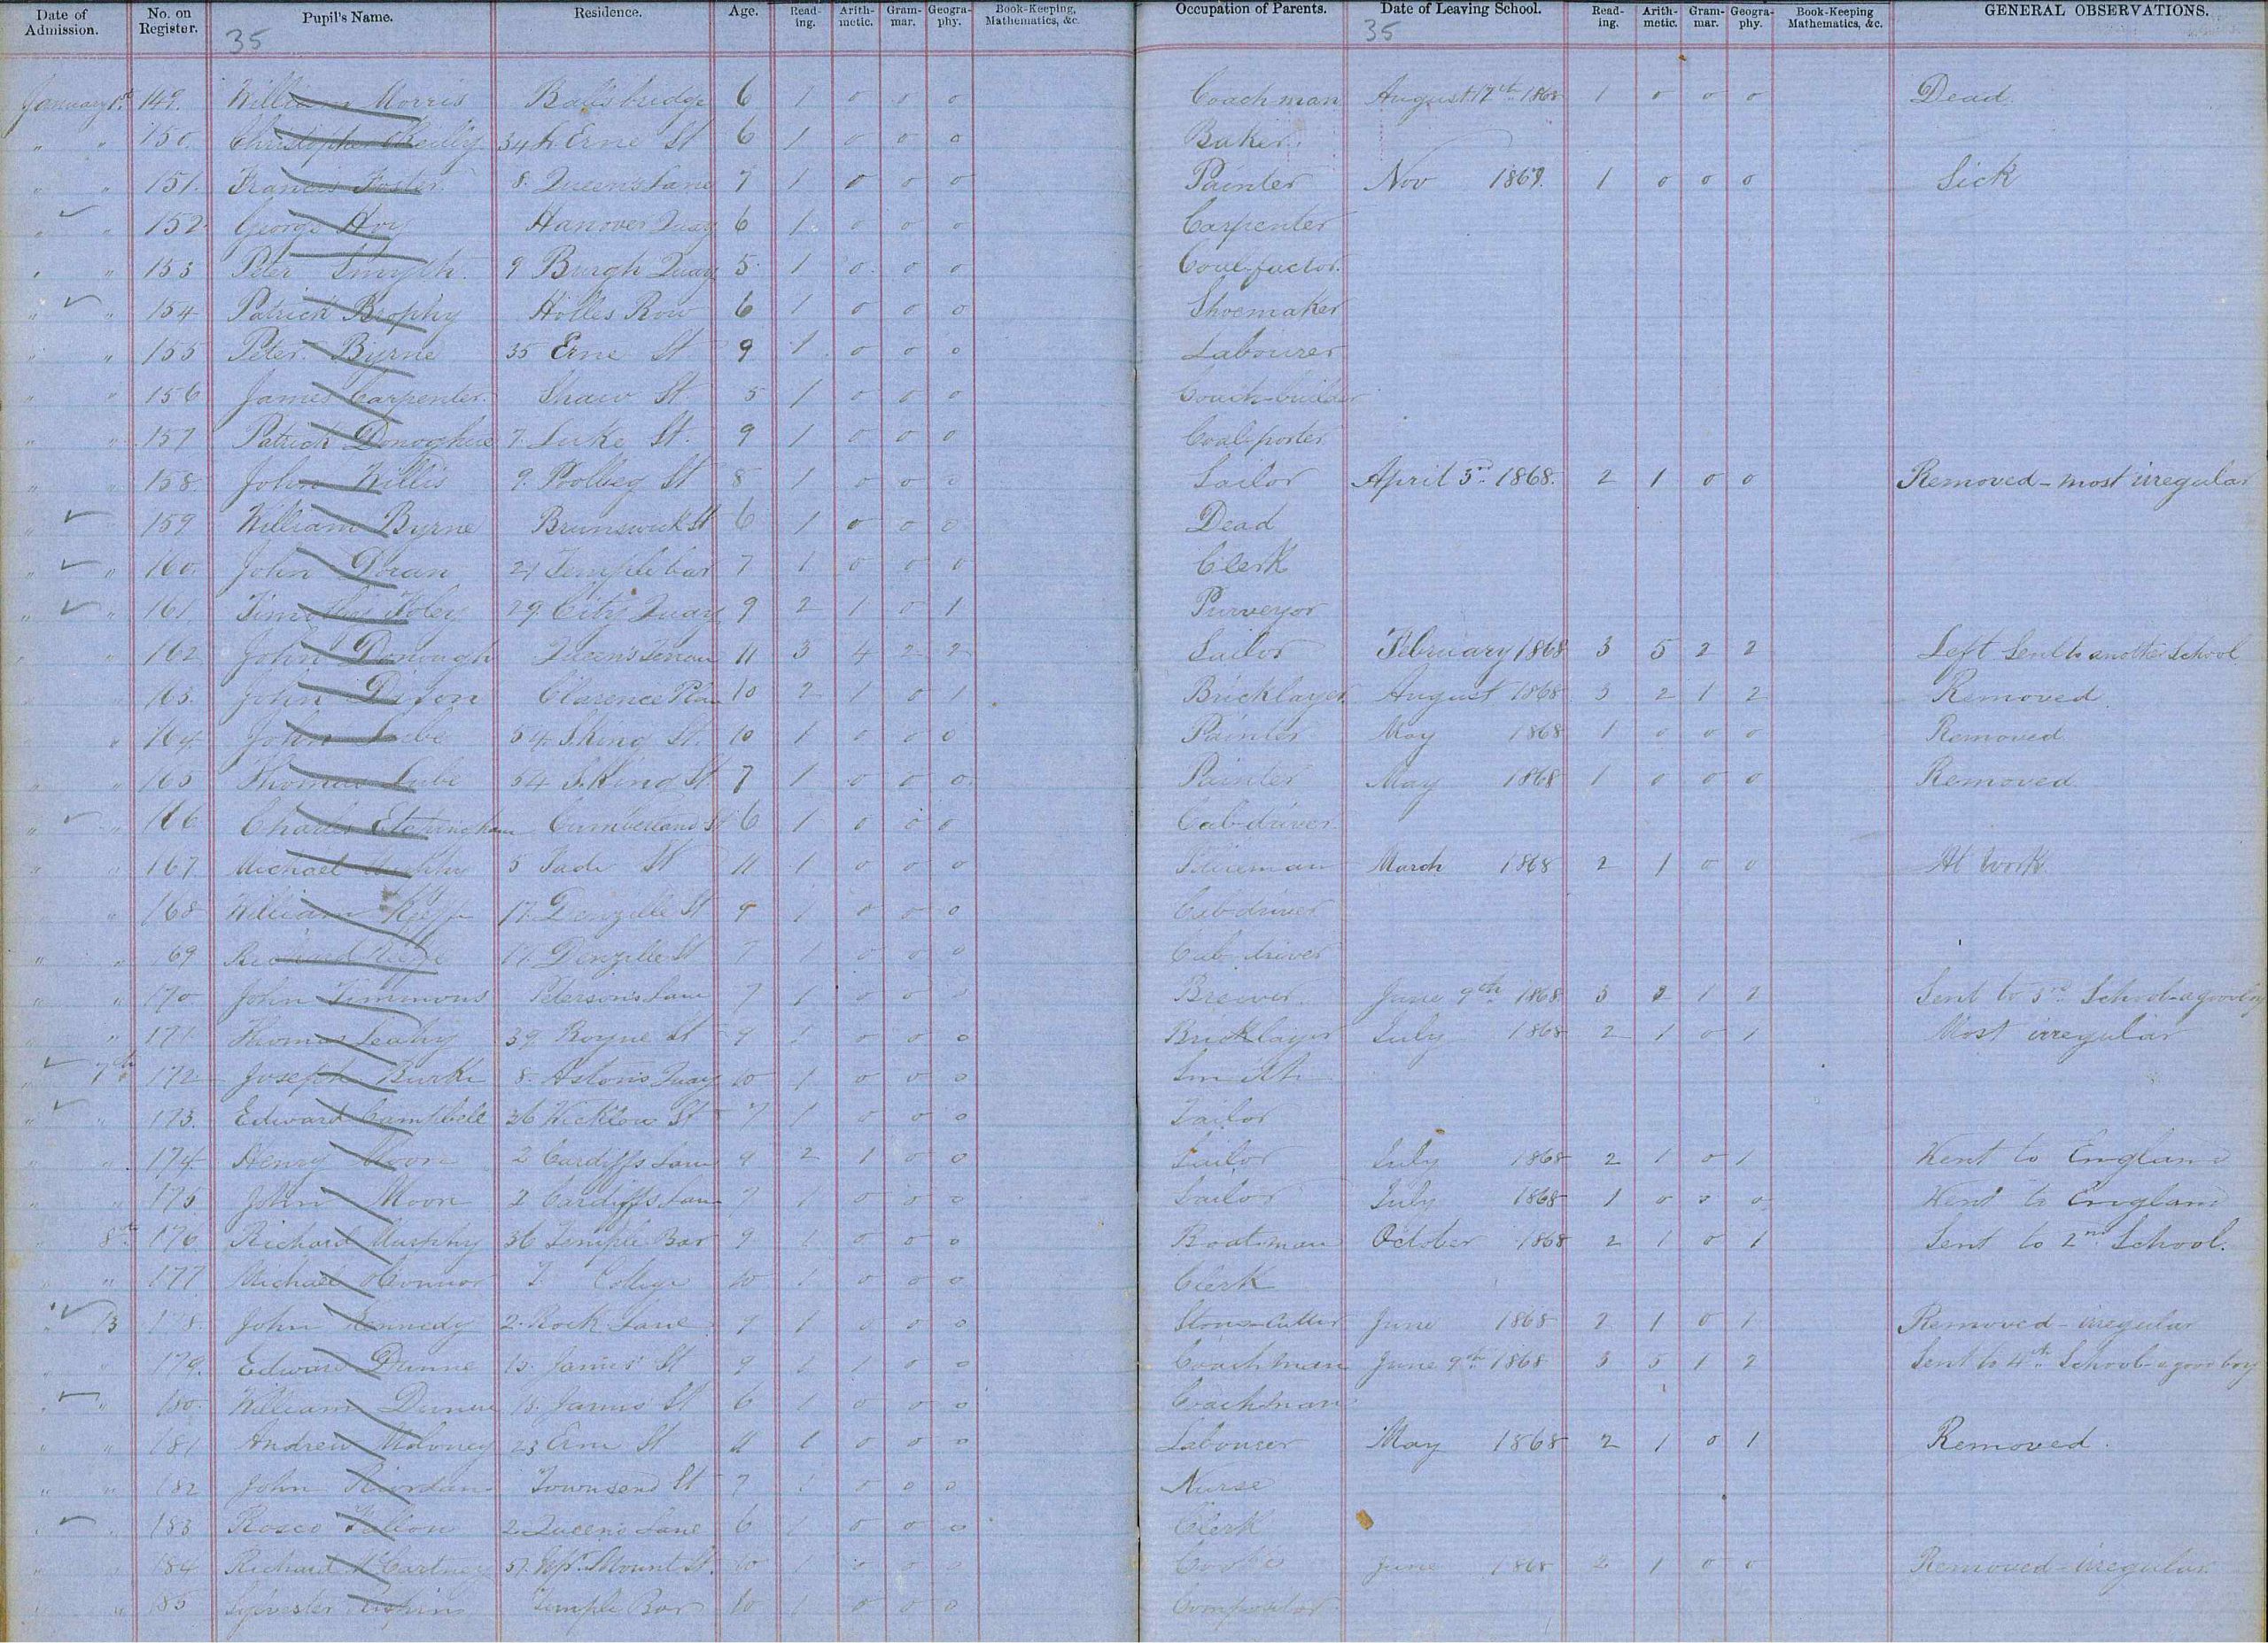 Date of Admission. No. on Register. Pupil's Name. Residence. Age. Reading. Arithmetic. Grammar. Geography. Book-Keeping, Mathematics, &c. Occupation of Parents. Date of Leaving School. Reading. Arithmetic. Grammar. Geography. Book-Keeping Mathematics, &c. GENERAL OBSERVATIONS.
35 35
January 1st 149. William Morris 6 1 0 0 0 Coachman August 12th 1868 1 0 0 0 Dead
" " 150. Christopher OReilly 34 Erne St 6 1 0 0 0 Baker
" " 151. Francis Foster 8. Queens Lane 7 1 0 0 0 Painter Nov 1869. 1 0 0 0 Sick
" " 152 George Hoy Hanover Quay 6 1 0 0 0 Carpenter
" " 153 Peter Smyth. 9 Burgh Quay 5 1 0 0 0 Coal-factor.
" " 154 Patrick Brophy Holles Row 6 1 0 0 0 Shoemaker
" " 155 Peter Byrne 35 Erne St 9 1 0 0 0 Labourer
" " 156 James Carpenter Shaw St. 5 1 0 0 0 Coach-builder
" " 157 Patrick Donoghue 7. Luke St. 9 1 0 0 0 Coal-porter
" " 158. John Willis 9. Poolbeg St 8 1 0 0 0 Sailor April 3rd 1868. 2 1 0 0 Removed - most irregular
" " 159 William Byrne Brunswick St 6 1 0 0 0 Dead
" " 160. John Doran 21 Temple bar 7 1 0 0 0 Clerk
" " 161 Timothy Foley 29. City Quay 9 2 1 0 1 Purveyor
" " 162 John Donough Queens 11 3 4 2 2 Sailor February 1868 3 5 2 2 Left Sent to another School
" " 163. John Clarence 10 2 1 0 1 Bricklayer August 1868 3 2 1 2 Removed.
" " 164. John Lube 54 S. King St. 10 1 0 0 0 Painter May 1868 1 0 0 0 Removed
" " 165 Thomas Lube 54 S. King St 7 1 0 0 0 Painter May 1868 1 0 0 0 Removed
" " 166 Charles Etchingham Cumberland St 6 1 0 0 0 Cab-driver
" " 167 Michael Murphy 5 St 11 1 0 0 0 March 1868 2 1 0 0 At work
" 168 William Keeffe 17. Denzille St 9 1 0 0 0 Cab-driver
" " 69 Richard Keeffe 17. Denzille St 7 1 0 0 0 Cab driver
" " 170 John Timmons Petersons Lane 7 1 0 0 0 Brewer June 9th 1868 3 2 1 1 Sent to 3rd School - a good boy
" 171 Thomas Leahy 39 Boyne St 9 1 0 0 0 Bricklayer July 1868 2 1 0 1 Most irregular
" 7th 172 Joseph Burke 8. Astons Quay 10 1 0 0 0 Smith
" " 173. Edward Campbell 36 Wicklow St 7 1 0 0 0 Tailor
" " 174 Henry Moon 2 Cardiffs Lane 9 2 1 0 0 Sailor July 1868 2 1 0 1 Went to England
" " 175 John Moon 2 Cardiffs Lane 7 1 0 0 0 Sailor July 1868 1 0 0 0 Went to England
8th 176 Richard Murphy 36 Temple Bar 9 1 0 0 0 Boatman October 1868 2 1 0 1 Sent to 2nd School.
" " 177 Michael OConnor College 10 1 0 0 0 Clerk
" 13 178. John Kennedy 2. Rock Lane 9 1 0 0 0 Stone-Cutter June 1868 2 1 0 1 Removed - irregular
" 179. Edward Dunne 13. James St 9 1 1 0 0 Coachman June 9th 1868 3 5 1 2 Sent to 4th School - a good boy
" " 180. William Dunne 13. James St 6 1 0 0 0 Coachman
" " 181 Andrew Moloney 23 Erne St 11 1 0 0 0 Labourer May 1868 2 1 0 1 Removed.
" " 182 John Riordan Townsend St 7 1 0 0 0 Nurse
" " 183 Fallon 2. Queens Lane 6 1 0 0 0 Clerk
" 184 Richard McCartney Upr. Mount St. 10 1 0 0 0 June 1868 2 1 0 0 Removed - irregular
" " 185 Sylvester Temple Bar 10 1 0 0 0 Compositor